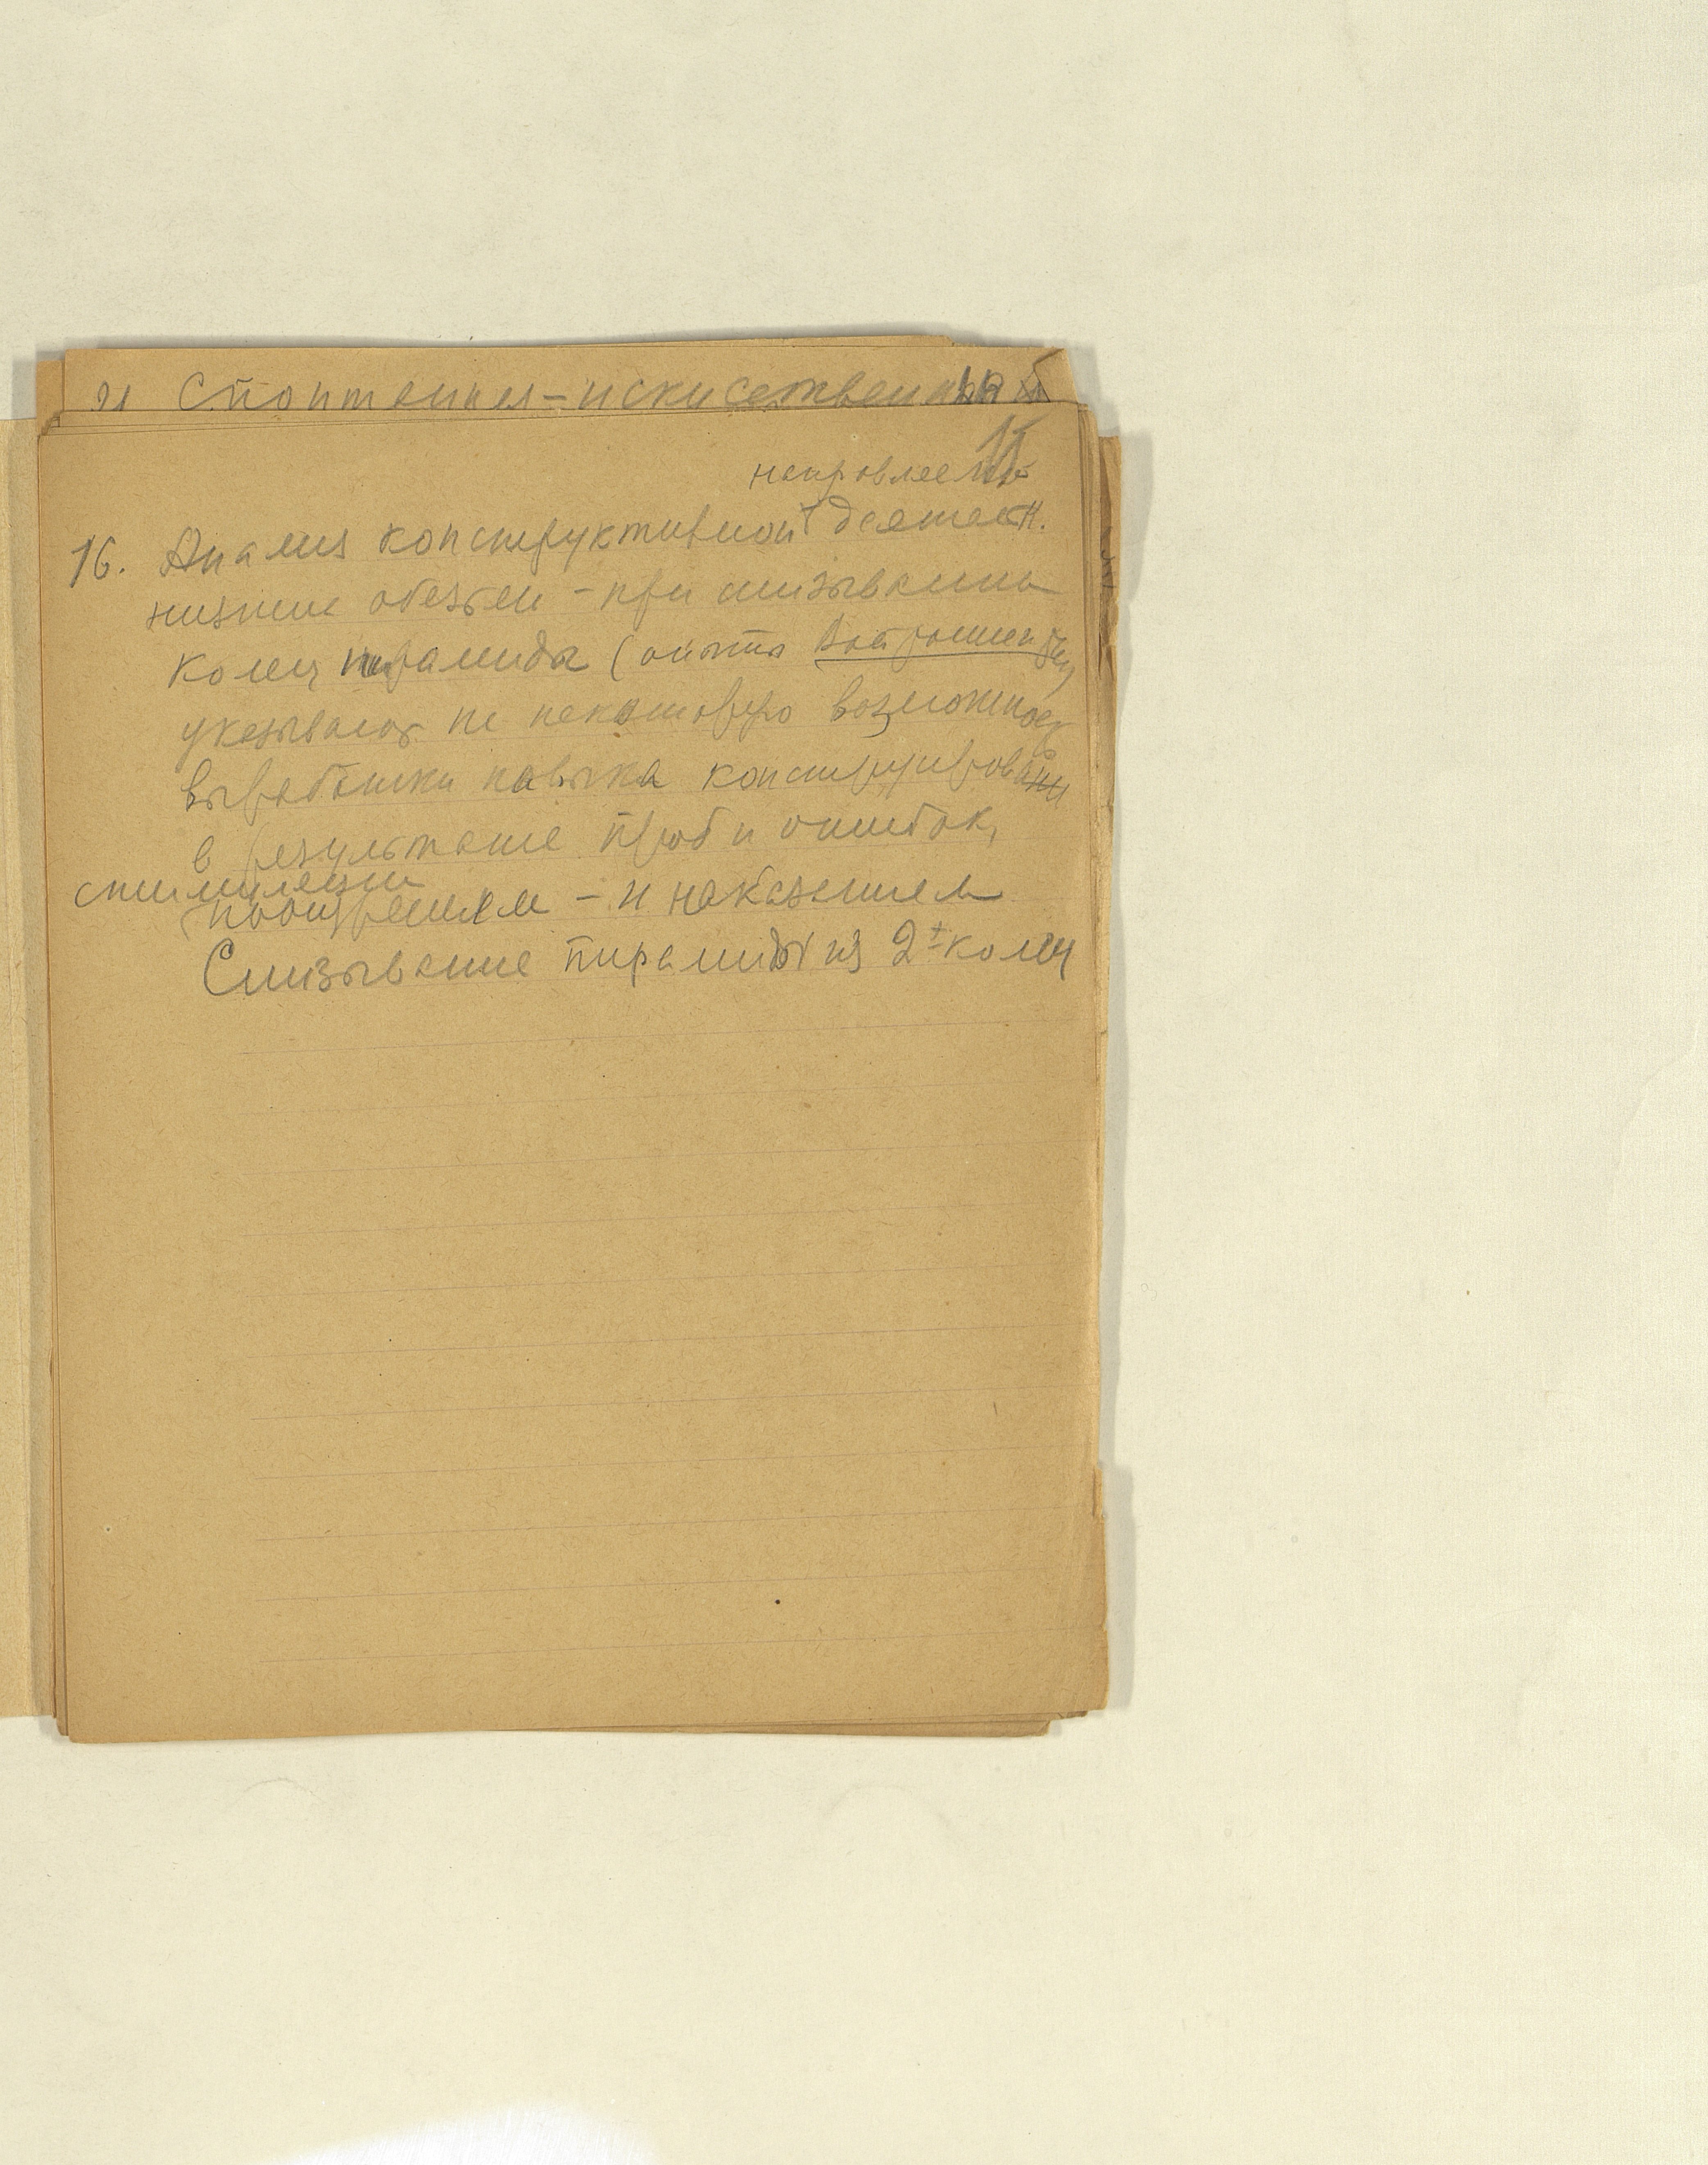 и Спонтанная – искусственная
15
направлен
16. Анализ конструктивной деятельн.
низших обезьян – при нанизывании
колец пирамиды (опыты
указывают на некоторую возможность
выработки навыка конструирован
в результате проб и ошибок,
стимуляции
поощрением – и наказанием
Снизывание пирамиды из 2х колец